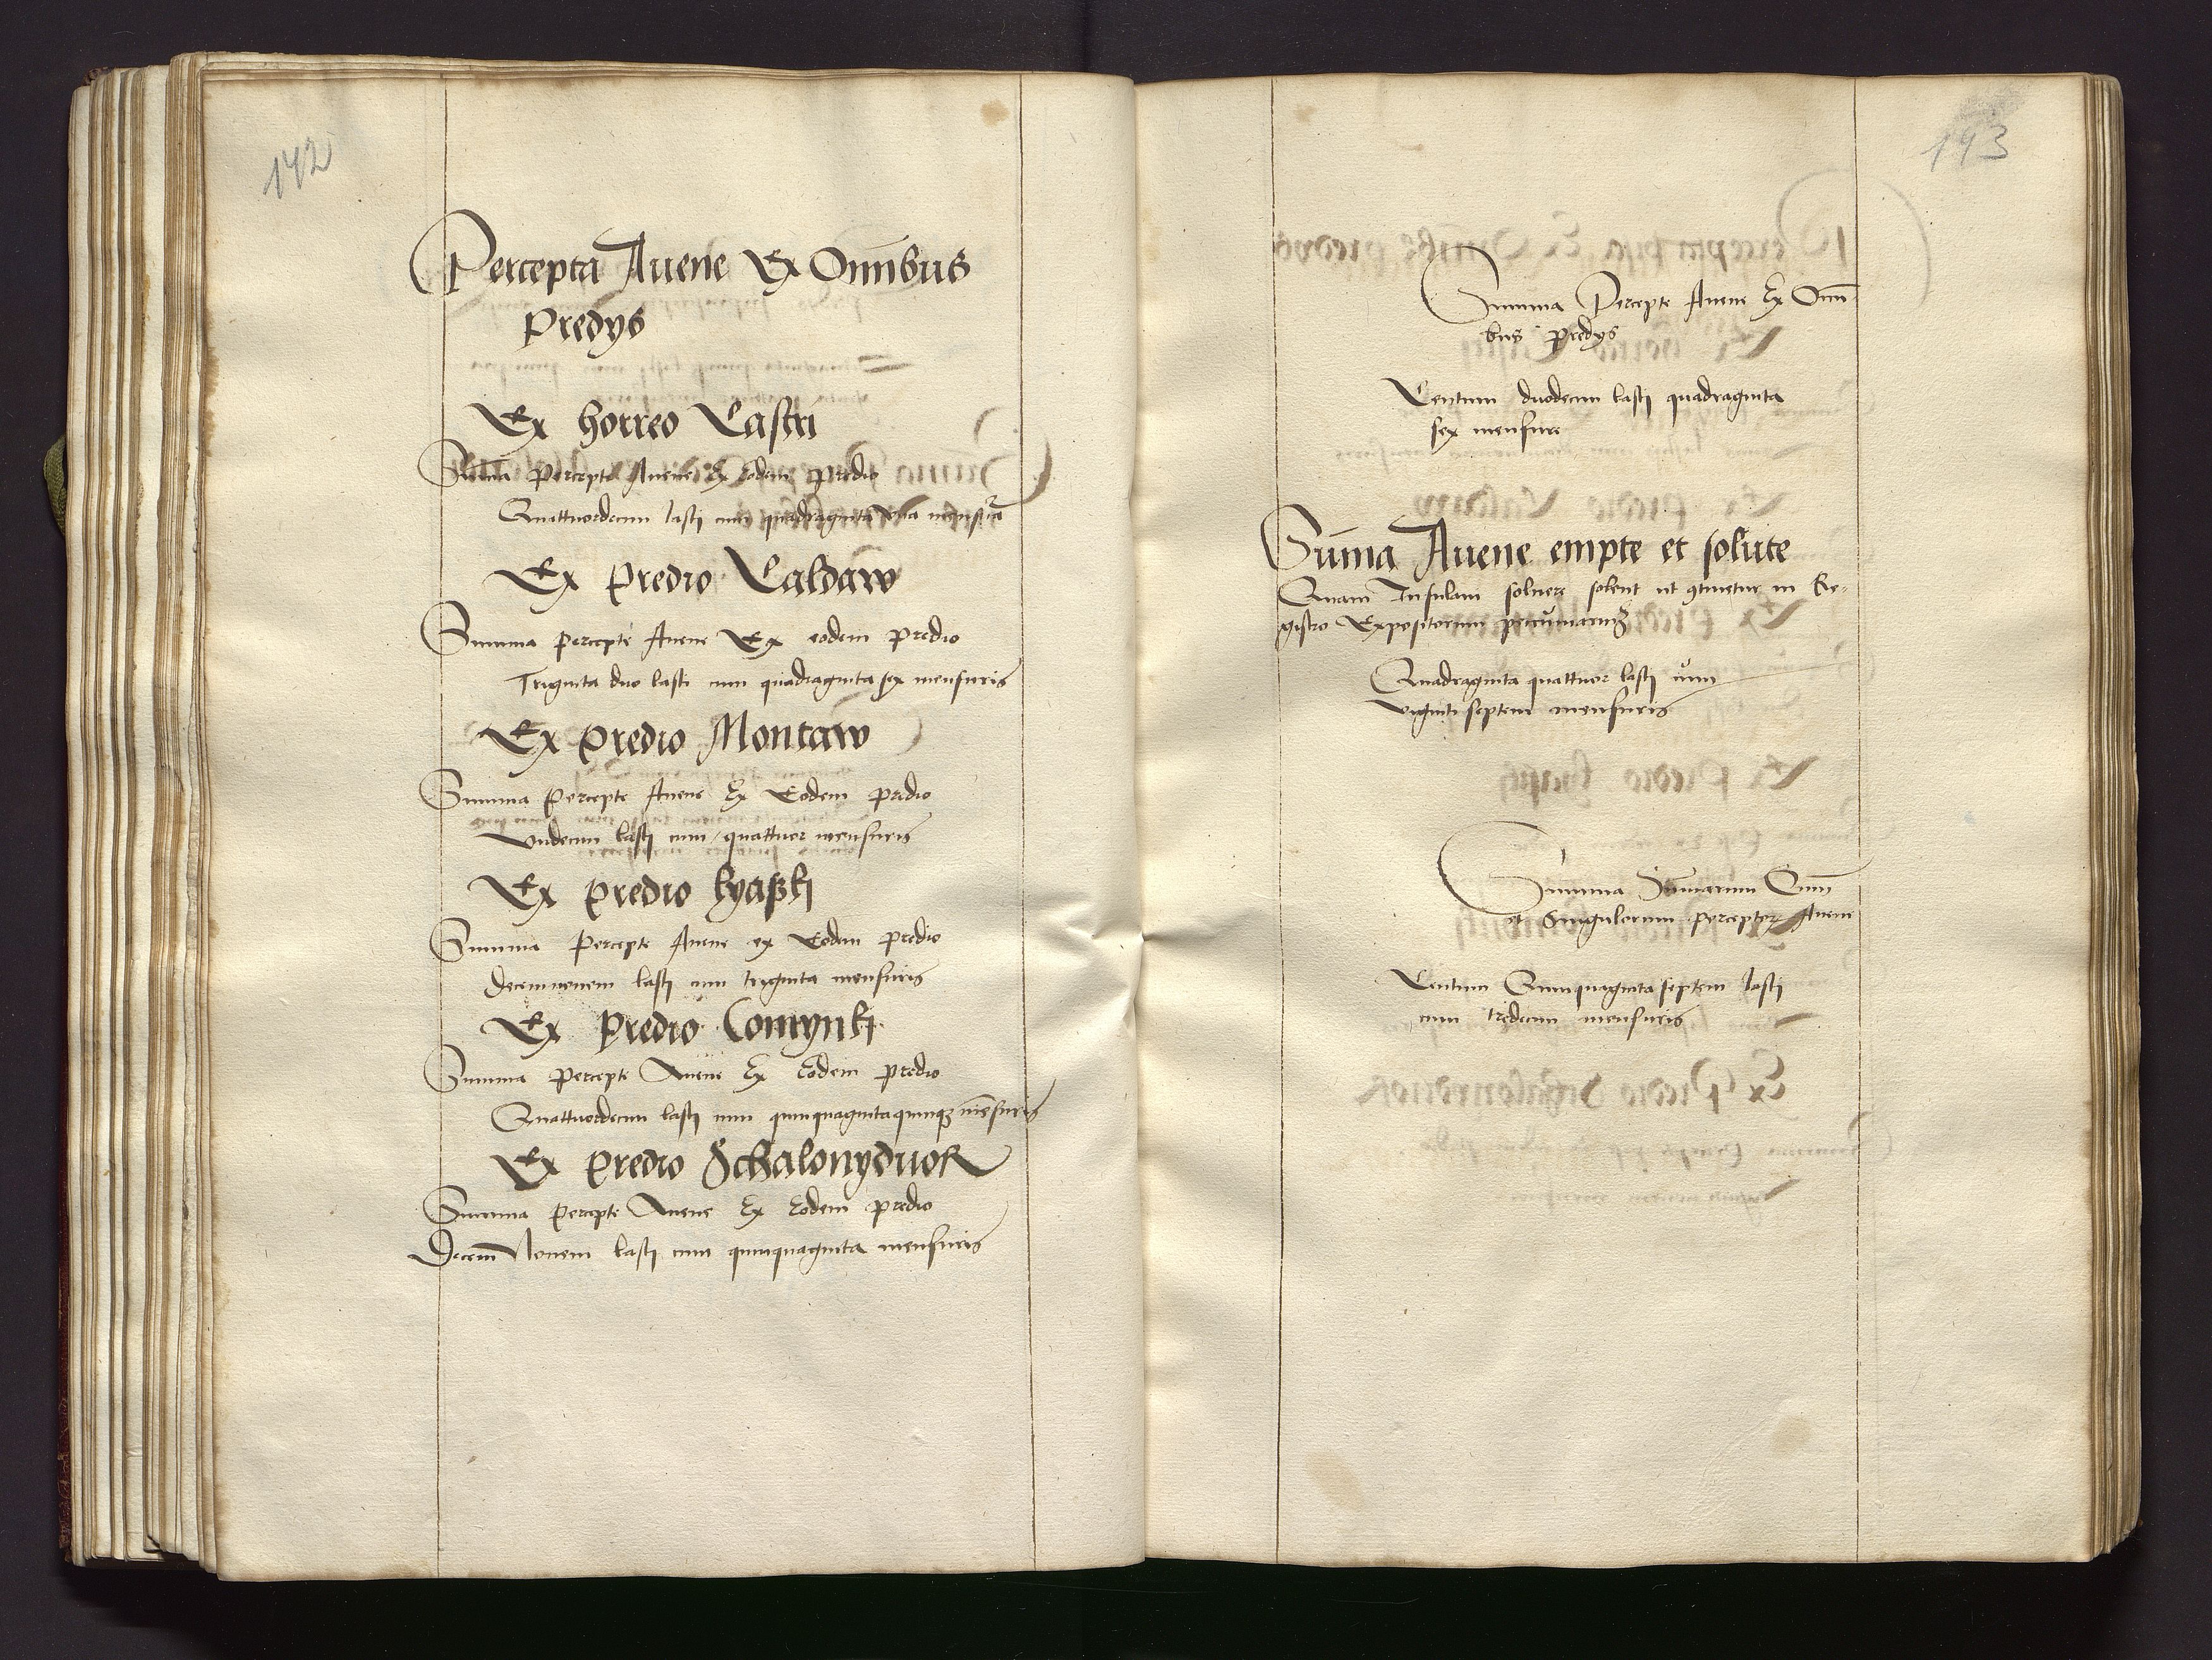 192
Percepta Auene Ex Om̄ibus
Predys
Ex horreo Castri
Sum̄a Percepte Auene Ex Eodem predio
Quattuordecim lasti cum quadraginta una mensura
Ex Predio Caldaw
Summa percepte Auene Ex eodem predio
Triginta duo lasti cum quadraginta sex mensuris
Ex predio Montaw
Summa Percepte Auene Ex Eodem predio
Vndecim lasti cum quattuor mensuris
Ex predio kyaszki
Summa Percepte Auene ex Eodem predio
Decemnouem lasti cum triginta mensuris
Ex Predio Comynki
Summa Percepte Auene Ex Eodem predio
Quattuordecim lasti cum quinquagintaquinqz mēsuris
Ex predio Schalonyduor
Summa Percepte Auene Ex Eodem predio
Decem Nouem lasti cum quinquaginta mensuris
193
Summa Percepte Auene Ex Om̄i
bus predys
Centum duodecim lasti quadraginta
sex mensure
Sum̄a Auene empte et solute
Quam Insulani soluere solent ut 9tinetur in Re-
gistro Expositorum pecuniaruz
Quadraginta quattuor lasti cum
viginti septem mensuris
Summa Sum̄arum Om̄i
et Singulorum perceptor Auene
Centum Quinquaginta septem lasti
cum tredecim mensuris